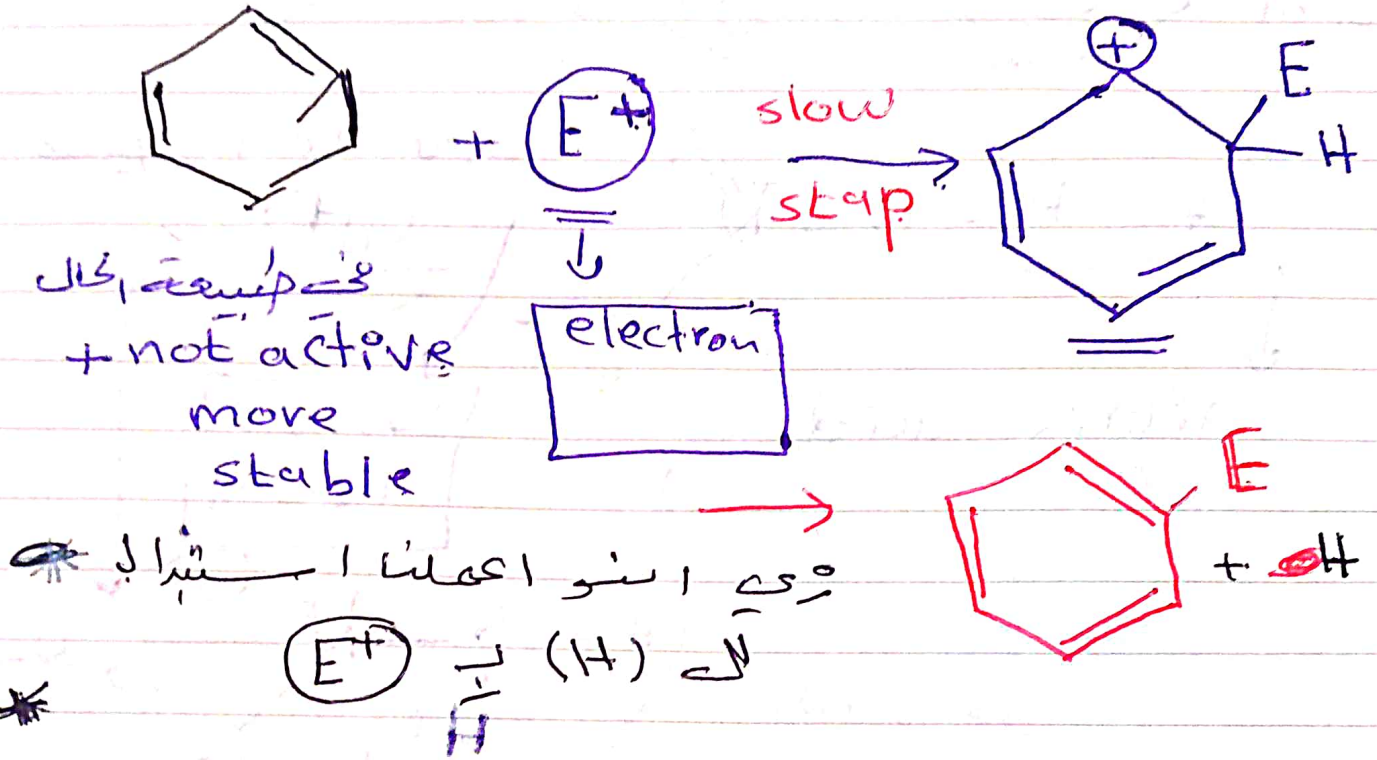 + E+ slow step E H +
في طبيعة الحال
+ not active
more
stable
electron
E
+ H
زي انو اعملنا استبدال
لل (H) بـ E+
H